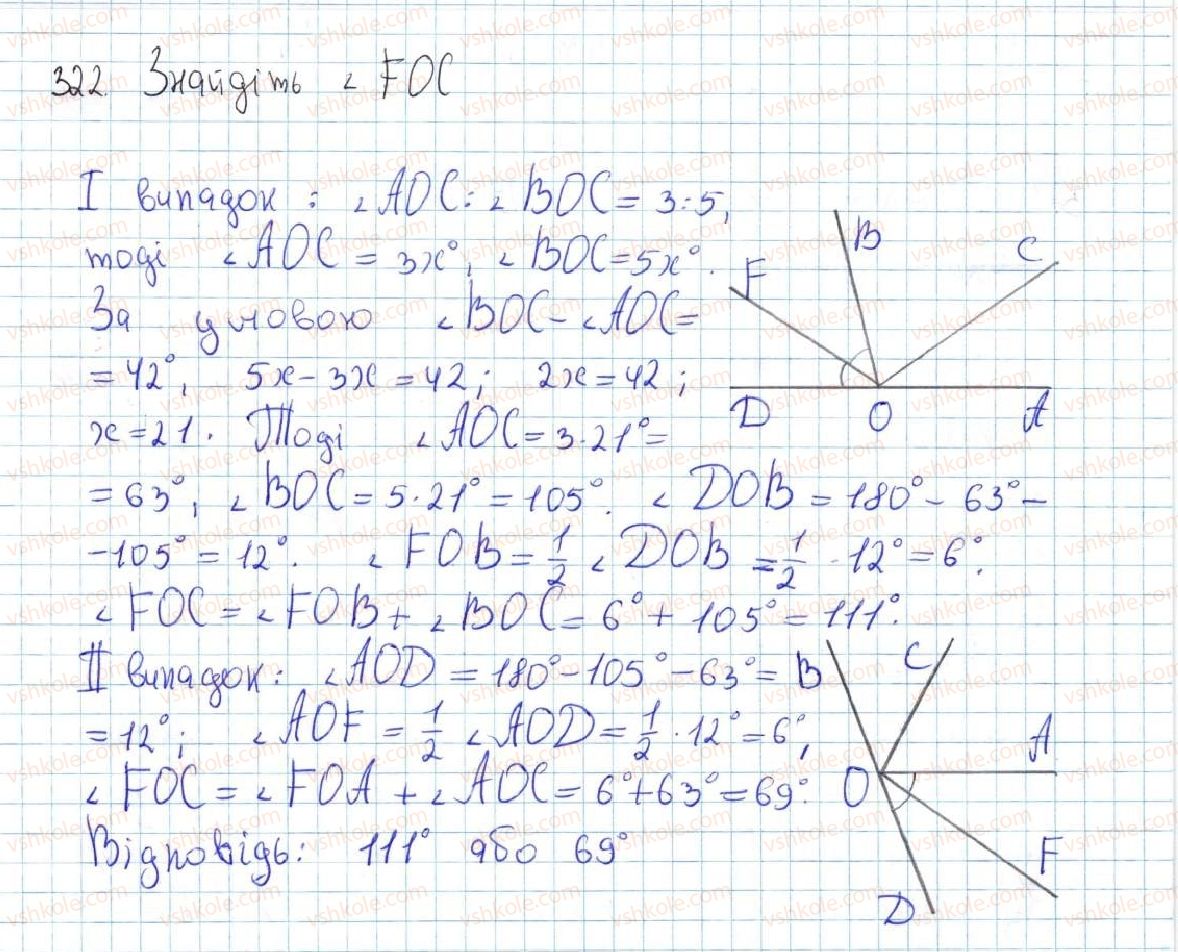 322. Знайдіть ∠ FOC
I випадок : ∠AOC : ∠BOC = 3:5,
тоді ∠AOC = 3x°, ∠BOC = 5x°.
За умовою ∠BOC - ∠AOC =
= 42°, 5x - 3x = 42; 2x = 42;
x = 21. Тоді ∠AOC = 3·21° =
= 63°, ∠BOC = 5·21° = 105°. ∠DOB = 180° - 63° -
- 105° = 12°. ∠FOB = 1/2 ∠DOB = 1/2 · 12° = 6°.
∠FOC = ∠FOB + ∠BOC = 6° + 105° = 111°.
II випадок: ∠AOD = 180° - 105° - 63° =
= 12°; ∠AOF = 1/2 ∠AOD = 1/2 · 12° = 6°,
∠FOC = ∠FOA + ∠AOC = 6° + 63° = 69°.
Відповідь: 111° або 69°
B
C
F
D
O
A
B
C
A
O
F
D
vshkole.com